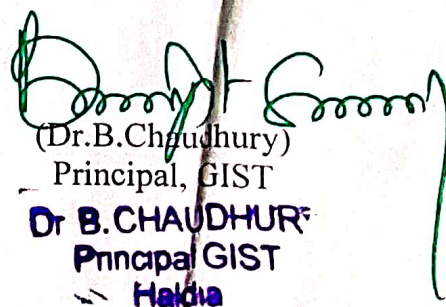 (Dr.B.Chaudhury)
Principal, GIST
Dr B.CHAUDHURY
Principal GIST
Haldia